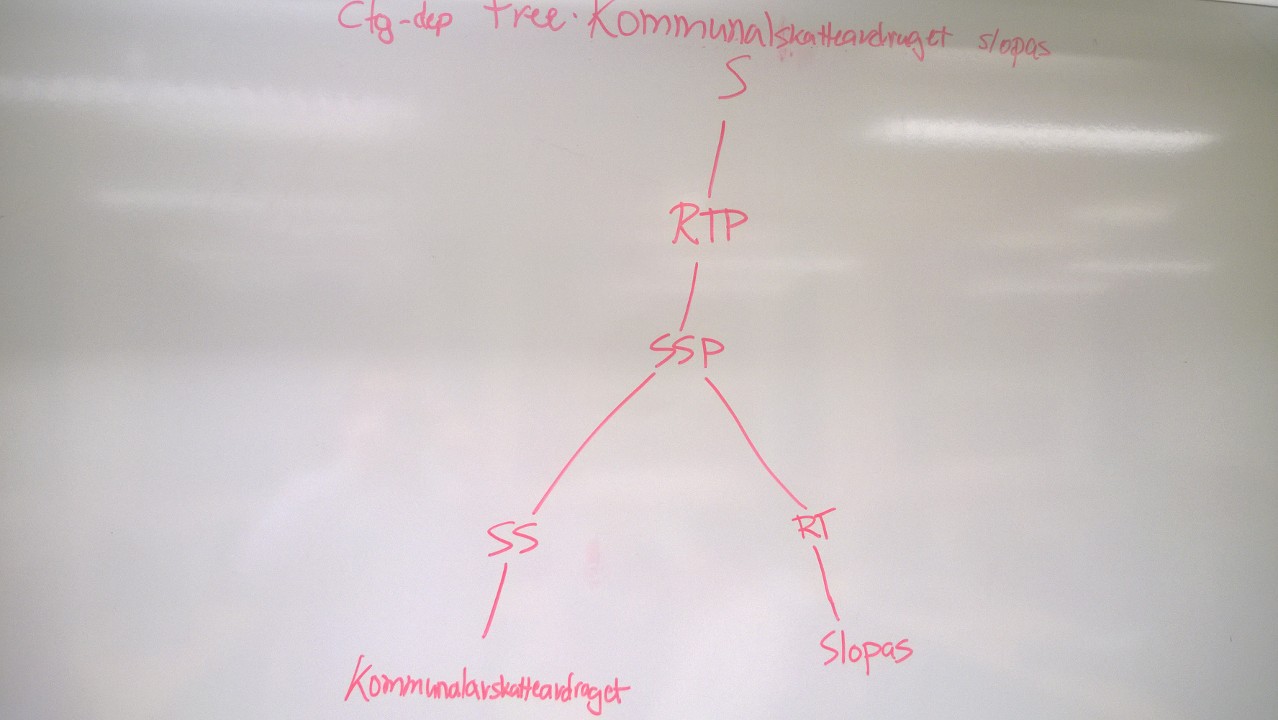 Cfg-dep tree. Kommunalskatteavdraget slopas
S
RTP
SSP
SS
RT
Slopas
Kommunalavskatteavdraget